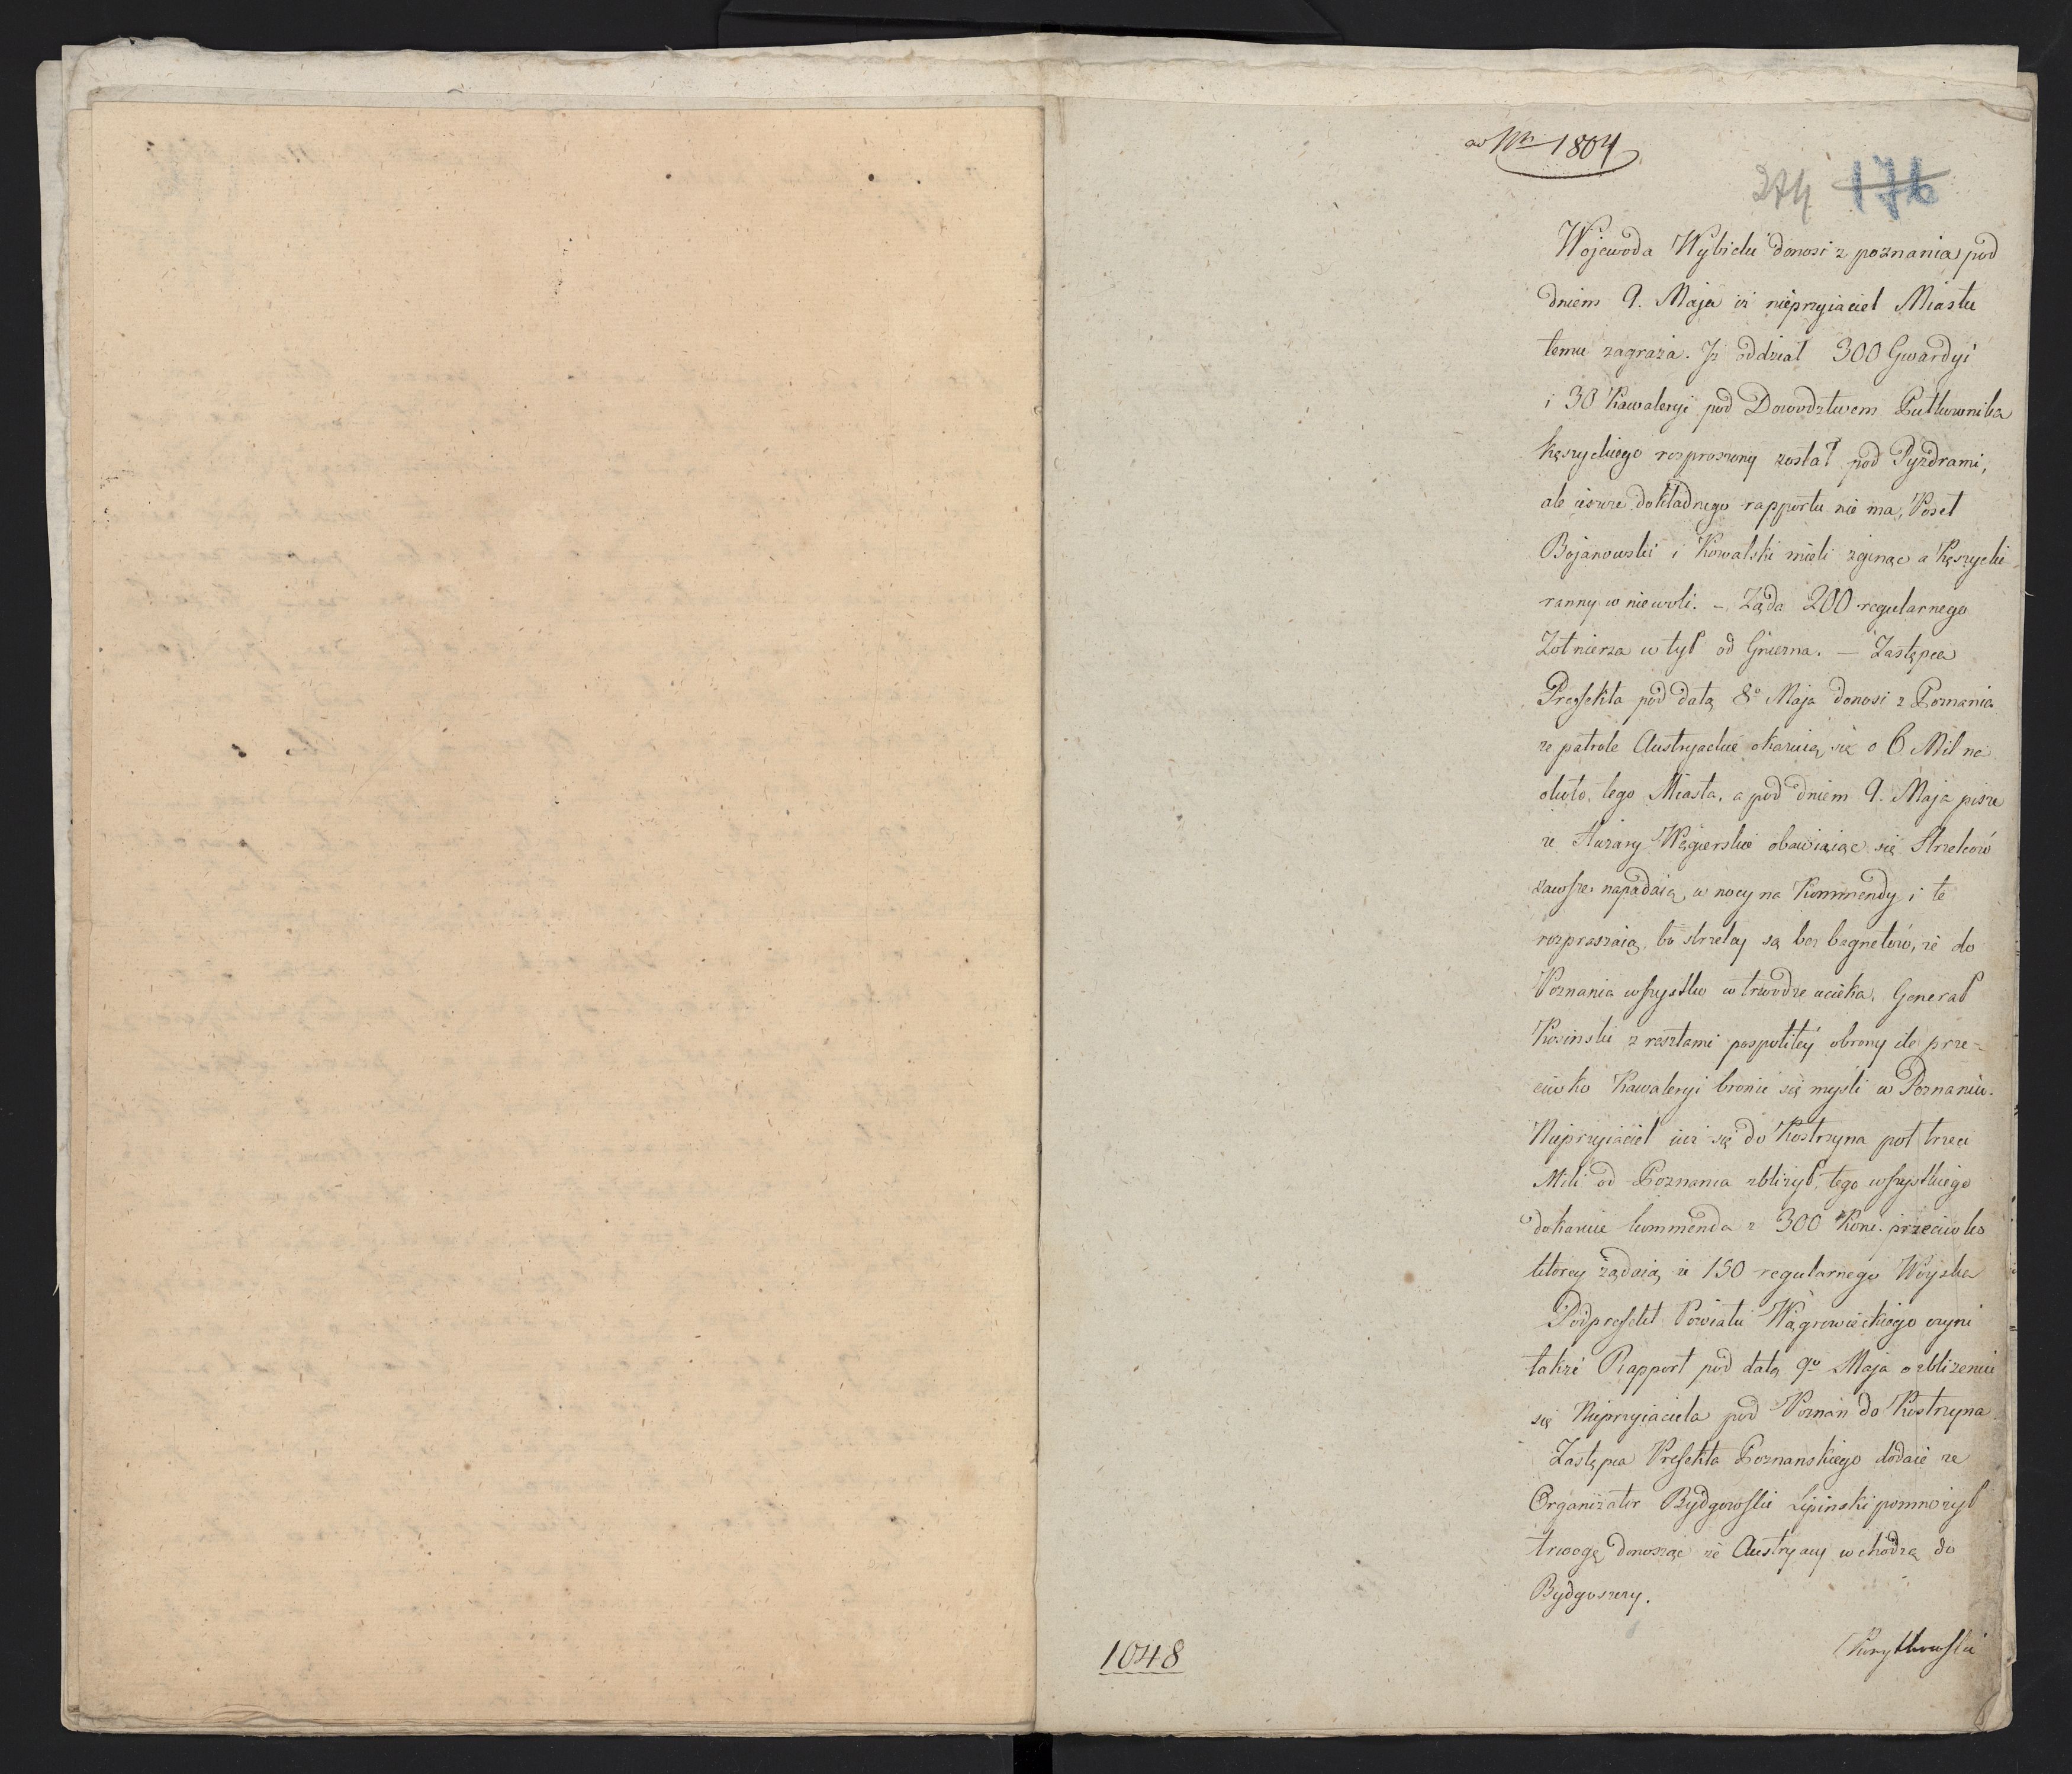 ad Nr 1804
274 176
Wojewoda Wybicki donosi z poznania pod
dniem 9. Maja iż nieprzyiaciel Miastu
temu zagraża. Iż oddział 300 Gwardyi
i 30 Kawaleryi pod Dowodztwem Pułkownika
Kęszyckiego rozproszony został pod Pyzdrami,
ale ieszcze dokładnego rapportu nie ma, Poseł
Bojanowski i Kowalski mieli zginąc a Kęszycki
ranny w niewoli. – Ząda 200 regularnego
Zołnierza w tył od Gniezna. — Zastępca
Prefekta pod datą 8o Maja donosi z Poznania
ze patrole Austryackie okazuią się o 6 Mil na
około tego Miasta, a pod dniem 9. Maja pisze
ze Huzary Węgierskie obawiaiąc się Strzelców
zawsze napadaią w nocy na Kommendy i te
rozpraszaią, bo strzelcy są bez bagnetów, że do
Poznania wszystko w trwodze ucieka. Generał
Kosinski z resztami pospolitéy obrony ile prze-
ciwko Kawaleryi bronic się mysli w Poznaniu.
Nieprzyiaciel iuż się do Kostrzyna poł trzeci
Mili od Poznania zbliżył, tego wszystkiego
dokazuie kommenda z 300 Koni. przeciwko
którey żądaią ze 150 regularnego Woyska
Podprefekt Powiatu Wągrowieckiego czyni
także Rapport pod datą 9o Maja o zbliżeniu
się Nieprzyiaciela pod Poznań do Kostrzyna.
Zastępca Prefekta Poznanskiego dodaie ze
Organizator Bydgowski Lipinski pomnożył
trwogę donosząc że Austryacy wchodzą do
Bydgoszczy.
1048